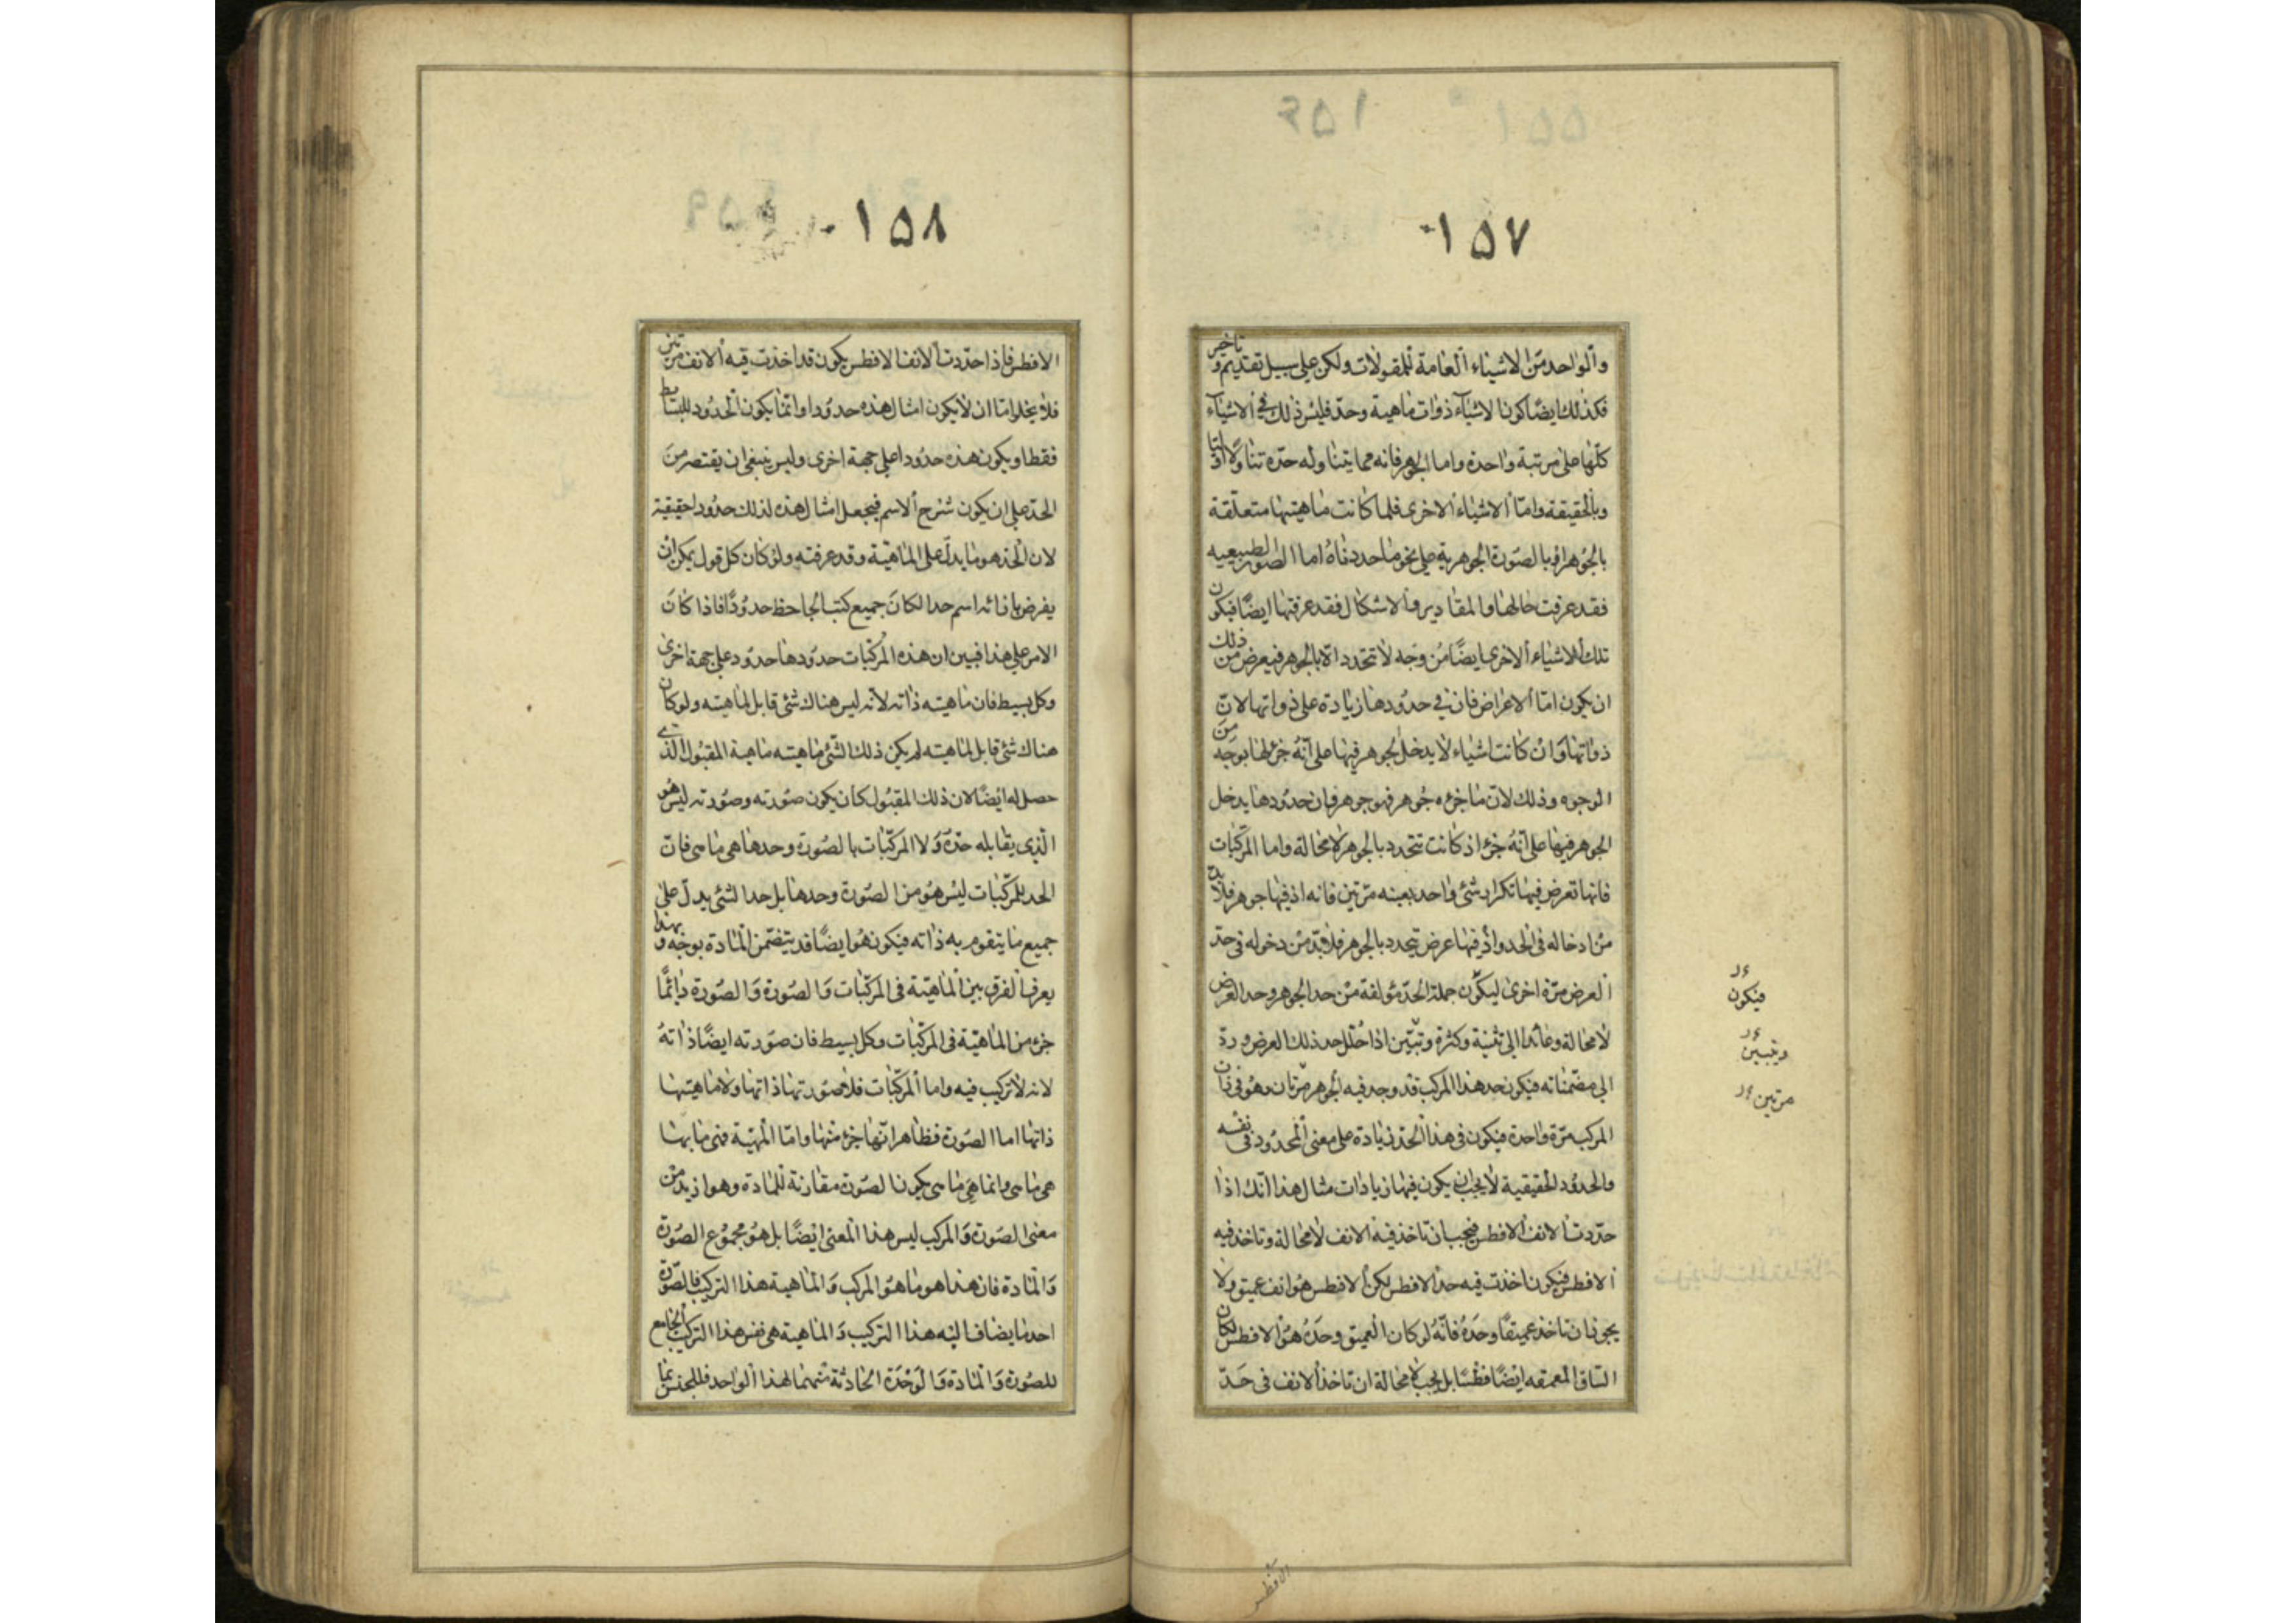 ۱۵۷
والواحد من الاشياء العامة للمقولات ولكن على سبيل تقديم و تاخير
فكذلك ايضا كون الاشياء ذوات ماهية وحد فليس ذلك في الاشياء
كلها على مرتبة واحدة واما الجوهر فانه مما يتناوله حده تناولا اوليا
وبالحقيقة واما الاشياء الاخرى فلما كانت ماهيتها متعلقة
بالجوهر او بالصورة الجوهرية على نحو ما حددناه اما الصور الطبيعيه
فقد عرفت حالها والمقادير والاشكال فقد عرفتها ايضا فيكون
تلك الاشياء الاخرى ايضا من وجه لا تتحدد الا بالجوهر فيعرض من ذلك
ان يكون اما الاعراض فان في حدودها زيادة على ذواتها لان
ذواتها وان كانت اشياء لا يدخل الجوهر فيها على انه جزء لها بوجه من
الوجوه وذلك لان ما جزءه جوهر فهو جوهر فان حدودها يدخل
الجوهر فيها على انه جزء اذ كانت تتحدد بالجوهر لا محالة واما المركبات
فانها تعرض فيها تكرار شئ واحد بعينه مرتين فانه اذ فيها جوهر فلا بد
من ادخاله فى الحد واذ فيها عرض يتحدد بالجوهر فلا بد من دخوله فى حد
العرض مرة اخرى ليكون جملة الحد مؤلفة من حد الجوهر وحد العرض
لا محالة وعائدا الى تثنية وكثرة وتبين اذا حلل حد ذلك العرض ورد
الى مضمناته فيكون حد هذا المركب قد وجد فيه الجوهر مرتان وهو فى ذات
المركب مرة واحدة فيكون فى هذا الحد زيادة على معنى المحدود فى نفسه
والحدود الحقيقية لا يجب ان يكون فيها زيادات مثال هذا انك اذا
حددت الانف الافطس فيجب ان تاخذ فيه الانف لا محالة وتاخذ فيه
الافطس فيكون اخذت فيه حد الافطس لكن الافطس هو انف عميق ولا
يجوز ان تاخذ عميقا وحده فانه لو كان العميق وحده هو الافطس لكان
الساق المعمقه ايضا فطسا بل يجب لا محالة ان تاخذ الانف فى حد
فيكون
ويتبين
مرتين
الافطس
۱۵۸
الافطس فاذا حددت الانف الافطس يكون قد اخذت فيه الانف مرتين
فلا يخلو اما ان لا يكون امثال هذه حدودا وانما يكون الحدود للبسائط
فقط او يكون هذه حدودا على جهة اخرى وليس ينبغى ان يقتصر من
الحد على ان يكون شرح الاسم فيجعل امثال هذه لذلك حدودا حقيقية
لان الحد هو ما يدل على الماهية وقد عرفته ولو كان كل قول يمكن ان
يفرض بازائه اسم حدا لكان جميع كتب الجاحظ حدودا فاذا كان
الامر على هذا فبين ان هذه المركبات حدودها حدود على جهة اخرى
وكل بسيط فان ماهيته ذاته لانه ليس هناك شئ قابل لماهيته ولو كان
هناك شئ قابل لماهيته لم يكن ذلك الشئ ماهيته ماهية المقبول الذي
حصل له ايضا لان ذلك المقبول كان يكون صورته وصورته ليس هو
الذي يقابله حده ولا المركبات بالصورة وحدها هي ما هى فان
الحد للمركبات ليس هو من الصورة وحدها بل حد الشئ يدل على
جميع ما يتقوم به ذاته فيكون هو ايضا قد يتضمن المادة بوجه و بهذا
يعرف الفرق بين الماهية فى المركبات والصورة والصورة دائما
جزء من الماهية فى المركبات وكل بسيط فان صورته ايضا ذاته
لانه لا تركيب فيه واما المركبات فلا صورتها ذاتها ولا ماهيتها
ذاتها اما الصورة فظاهر انها جزء منها واما المهية فهى ما بها
هى ما هى وانما هى ما هى بكون الصورة مقارنة للمادة وهو ازيد من
معنى الصورة والمركب ليس هذا المعنى ايضا بل هو مجموع الصورة
والمادة فان هذا هو ما هو المركب والماهية هذا التركيب فالصورة
احد ما يضاف اليه هذا التركيب والماهية هى نفس هذا التركيب الجامع
للصورة والمادة والوحدة الحادثة منهما لهذا الواحد فللجنس بما